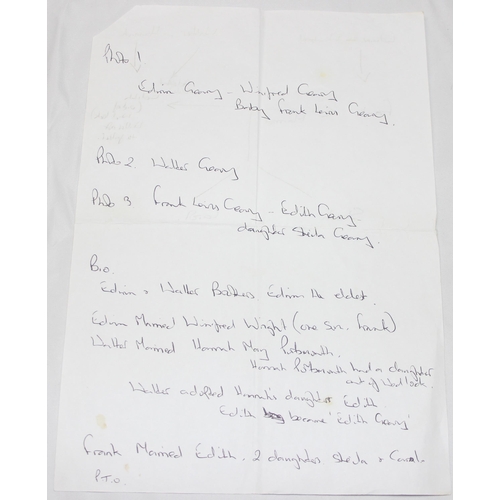 Photo 1.
Edwin Geary - Winifred Geary
Baby Frank Lewis Geary.
Photo 2. Walter Geary
Photo 3. Frank Lewis Geary - Edith Geary.
daughter Sheila Geary.
Bio.
Edwin + Walter Brothers. Edwin the eldest.
Edwin Married Winifred Wright (one Son. Frank)
Walter Married Hannah May
Hannah had a daughter
out of Wedlock.
Walter adopted Hannah's daughter Edith
Edith became 'Edith Geary'
Frank Married Edith. 2 daughters Sheila + Carol.
P.T.O.